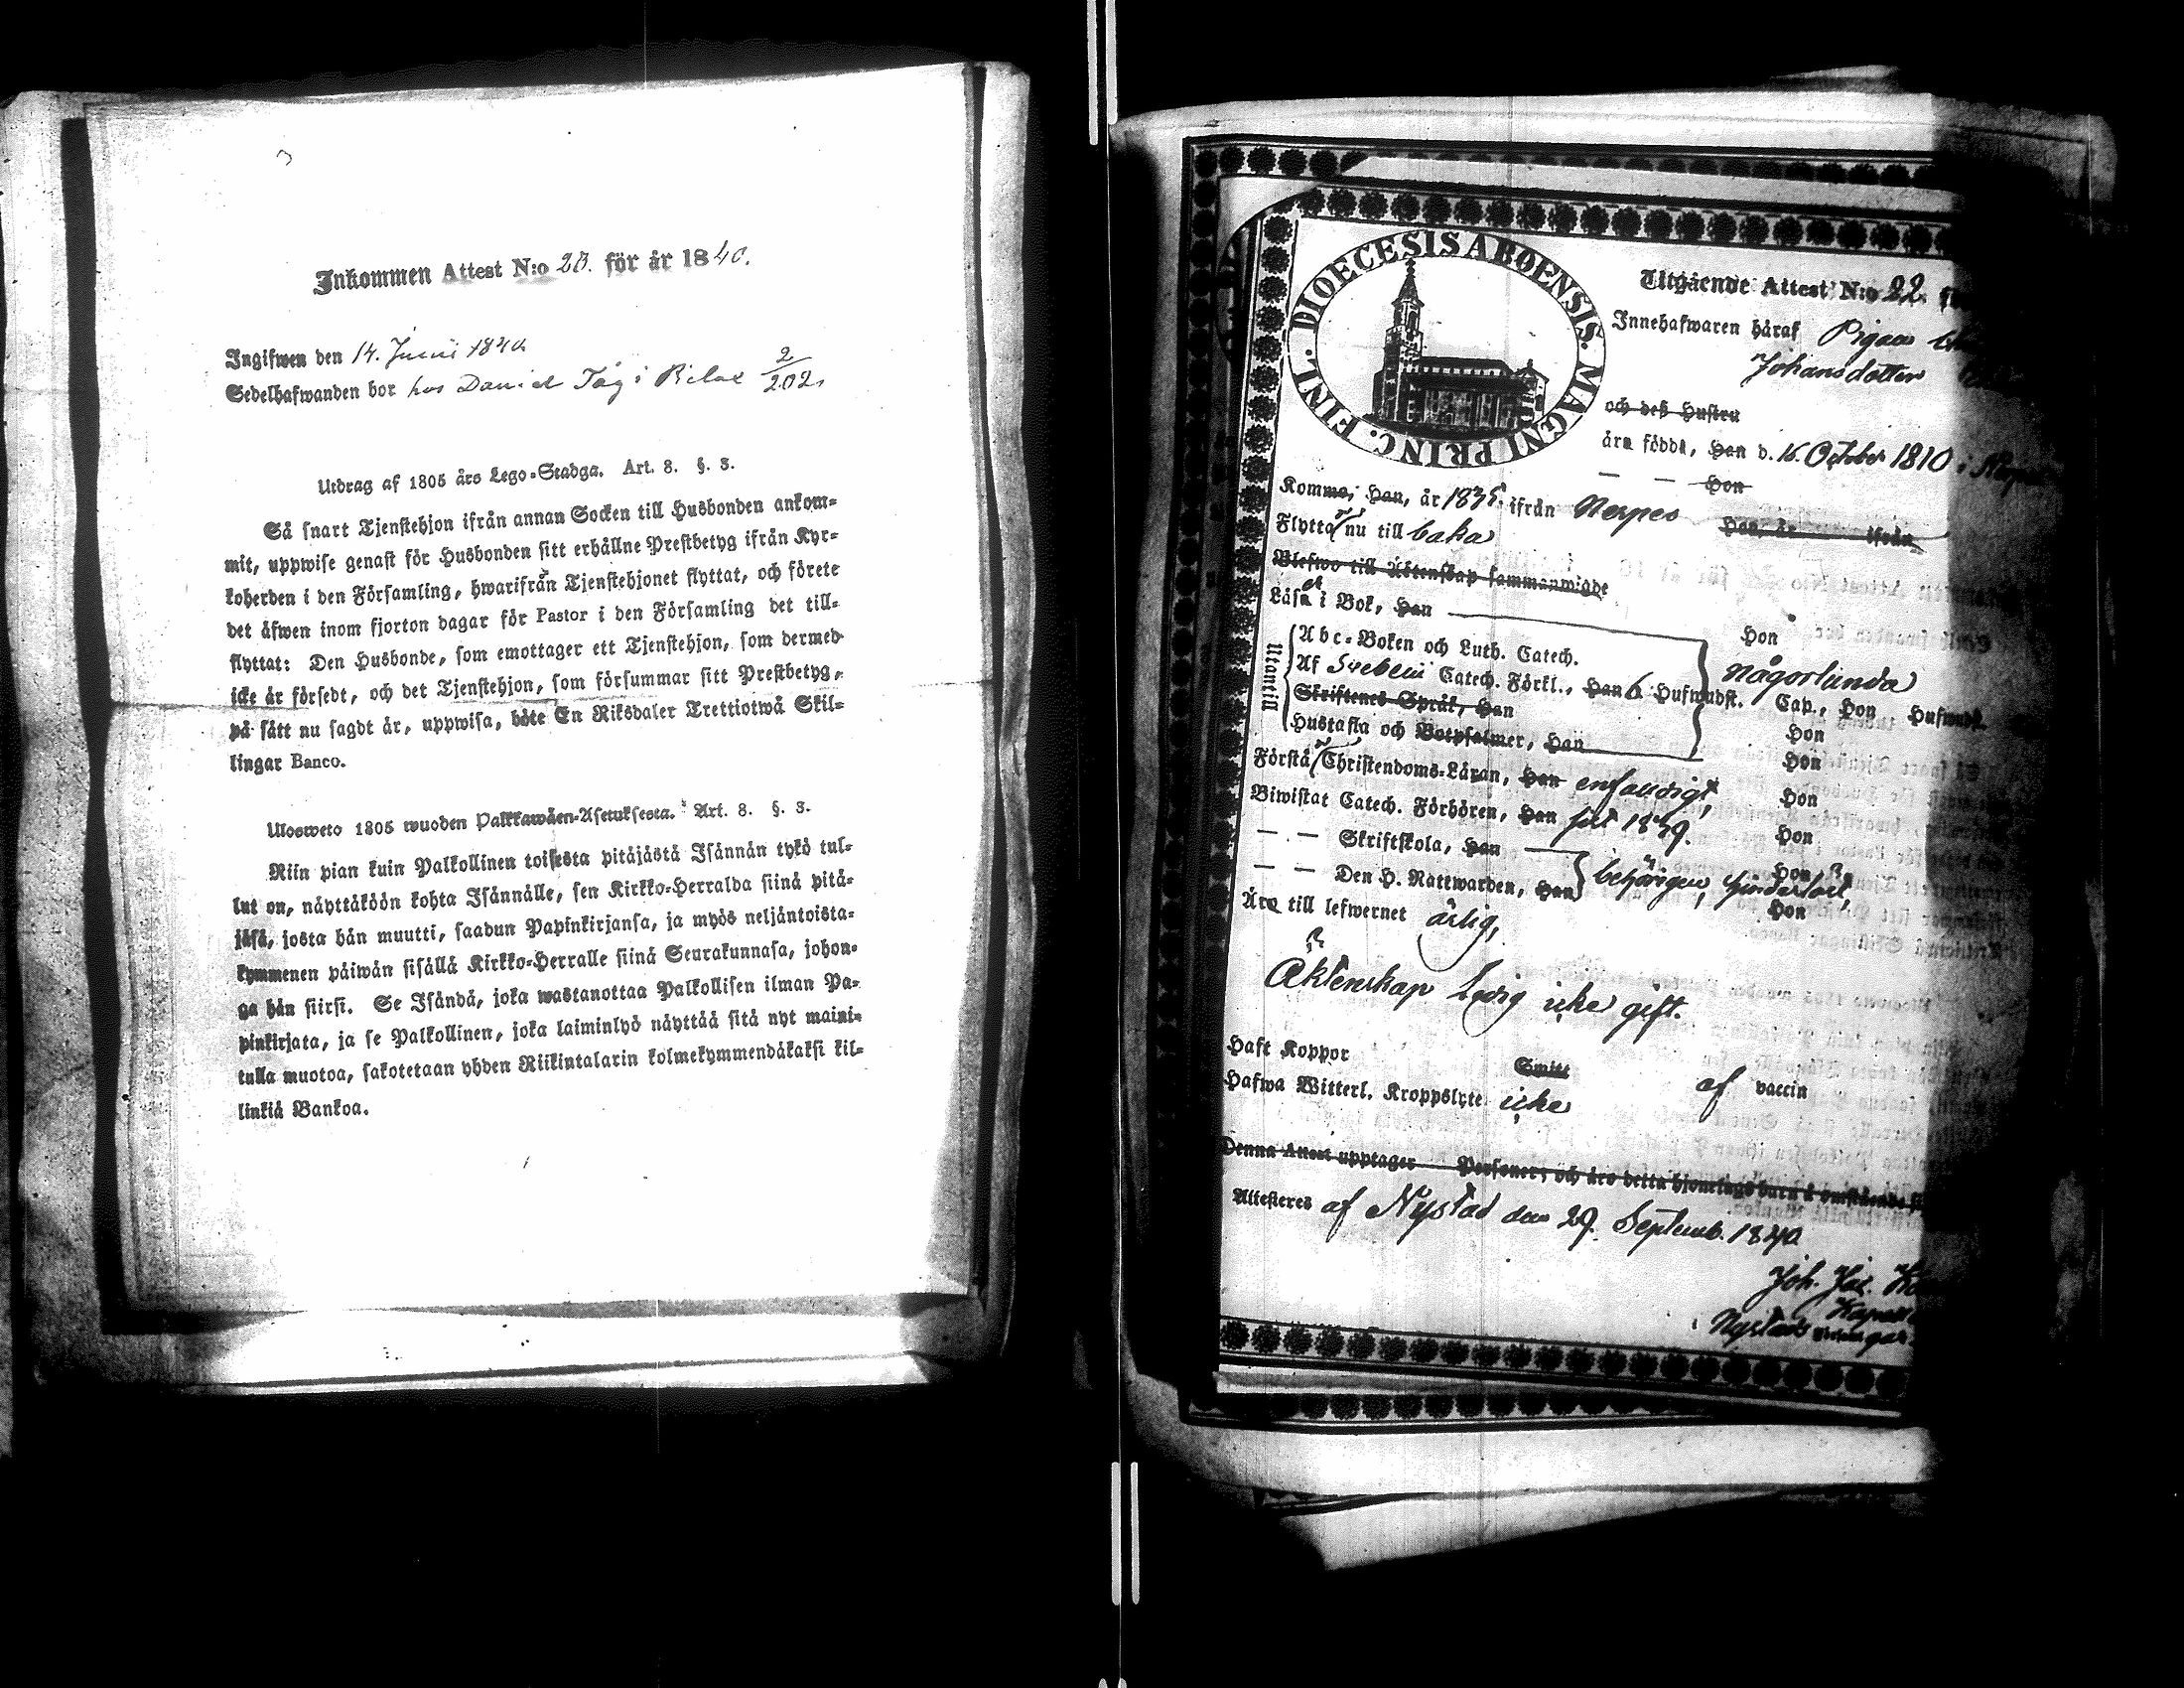 Inkommen Attest N:o 23. för år 1840.
Ingifwen den 14. Junii 1840
Sedelhafwanden bor hos Daniel Tåg i Rilax 2/202.
Utdrag af 1805 års Lego-Stadga. Art. 8. §. 3.
Så snart Tjenstehjon ifrån annan Socken till Husbonden ankom-
mit, uppwise genast för Husbonden sitt erhållne Prestbetyg ifrån Kyr-
koherden i den Församling, hwarifrån Tjenstehjonet flyttat, och förete
det äfwen inom fjorton dagar för Pastor i den Församling det till-
flyttat: Den Husbonde, som emottager ett Tjenstehjon, som dermed
icke är försedt, och det Tjenstehjon, som försummar sitt Prestbetyg,
på sätt nu sagdt är, uppwisa, böte En Riksdaler Trettiotwå Skil-
lingar Banco.
Ulosweto 1805 wuoden Palkkawäen-Asetuksesta. Art. 8. §. 3.
Niin pian kuin Palkollinen toisesta pitäjästä Isännän tykö tul-
lut on, näyttäköön kohta Isännälle, sen Kirkko-Herralda siinä pitä-
jäsä, josta hän muutti, saadun Papinkirjansa, ja myös neljäntoista-
kymmenen päiwän sisällä Kirkko-Herralle siinä Seurakunnasa, johon-
ga hän siirsi. Se Isändä, joka wastanottaa Palkollisen ilman Pa-
pinkirjata, ja se Palkollinen, joka laiminlyö näyttää sitä nyt maini-
tulla muotoa, sakotetaan yhden Riikintalarin kolmekymmendäkaksi kil-
linkiä Bankoa.
DIOECESIS ABOENSIS. MAGNI PRINC. FINL.
Utgående Attest N:o 22.
Innehafwaren häraf Pigan
Johansdotter
och deß Hustru
äro födde, Han d. 16 October 1810 i
— — Hon
Komme, Han, år 1835. ifrån Nerpes Han, år ifrån
Flytta nu till baka
Blefwo till Äktenskap sammanwigde
Läsa i Bok, Han Hon
Utantill
Abc-Boken och Luth. Catech. någorlunda
Af Svebelii Catech. Förkl., Han 6 Hufwudst. Cap., Hon Hufwudst.
Skriftenes Språk, Han Hon
Hustafla och Botpsalmer, Han Hon
Förstå Christendoms-Läran, Han enfaldigt, Hon
Biwistat Catech. Förhören, Han sist 1839. Hon
— — Skriftskola, Han Hon
— — Den H. Nattwarden, Han behörigen, Hon
Äro till lefwernet ärlig,
Äktenskap Ledig icke gift.
Haft Koppor Smitt af vaccin
Hafwa Witterl. Kroppslyte icke
Denna Attest upptager Personer, och äro detta hjonelags barn å omstående
Attesteres af Nystad den 29. Septemb. 1840
Joh. Jac.
Nystads